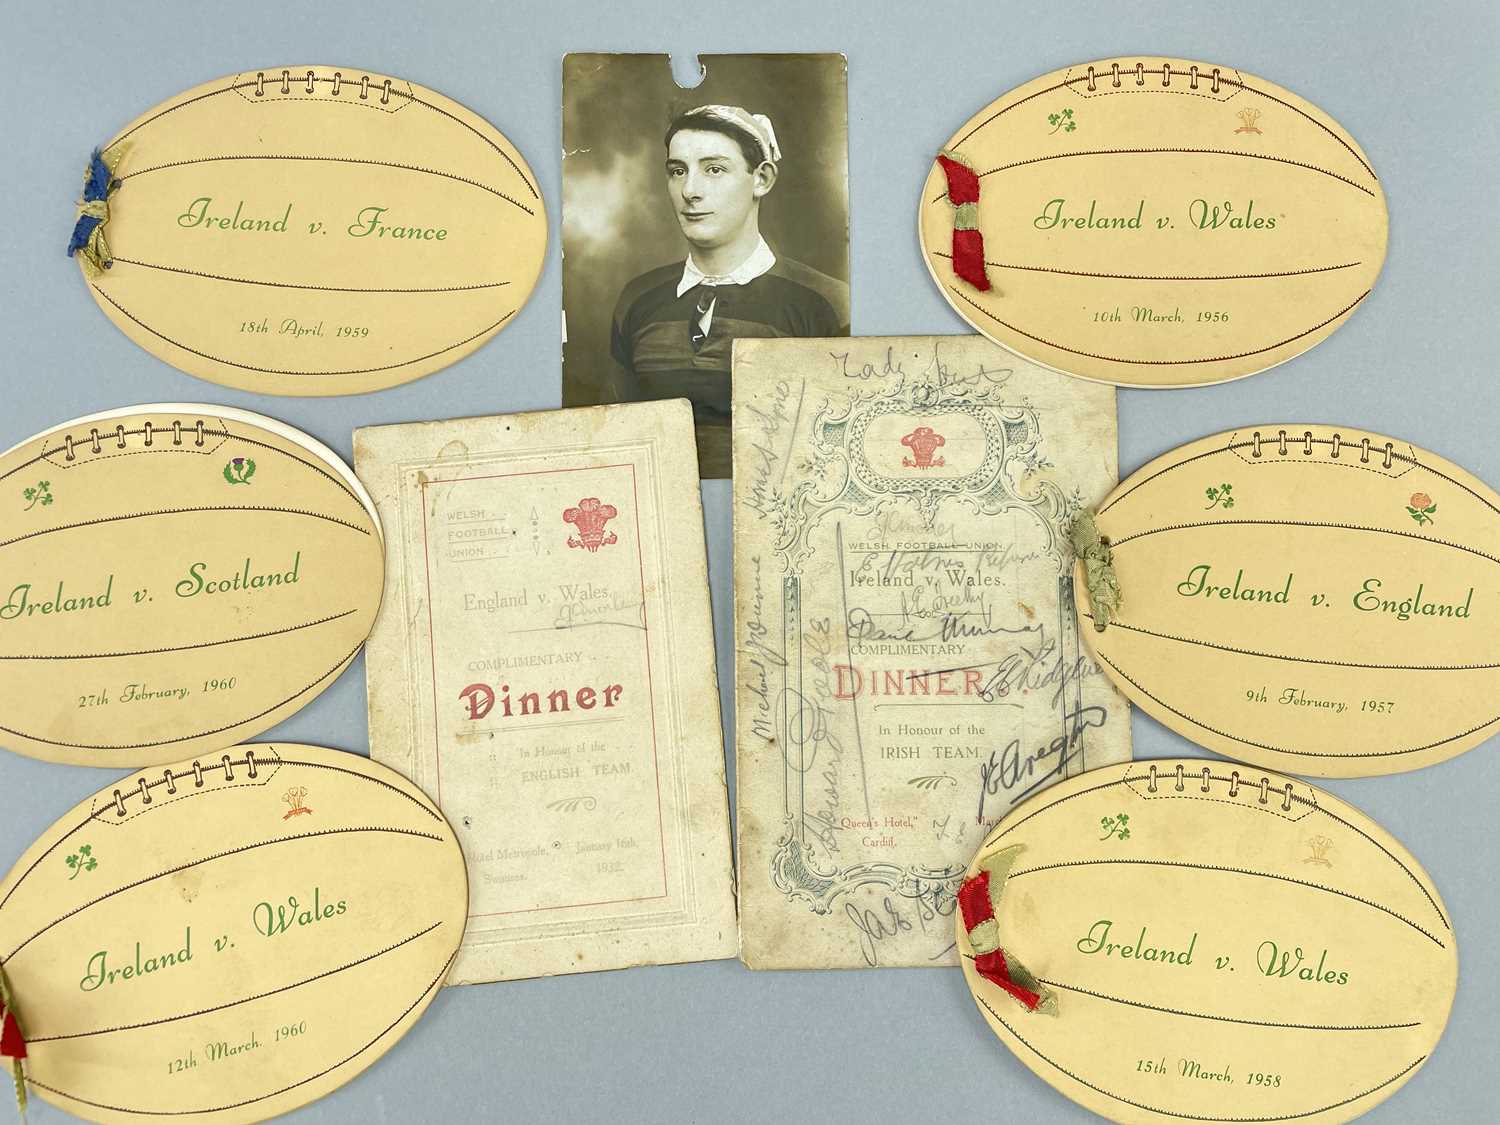 Ireland v. France
18th April, 1959
Ireland v. Wales
10th March, 1956
Ireland v. Scotland
27th February, 1960
Ireland v. England
9th February, 1957
Ireland v. Wales
12th March, 1960
Ireland v. Wales
15th March, 1958
WELSH
FOOTBALL
UNION
England v. Wales.
COMPLIMENTARY
Dinner
In Honour of the
ENGLISH TEAM
Hotel Metropole,
January 16th,
Swansea.
1932.
WELSH FOOTBALL UNION.
Ireland v. Wales.
COMPLIMENTARY
DINNER
In Honour of the
IRISH TEAM
"Queen's Hotel,"
Cardiff.
Michael J Dunne